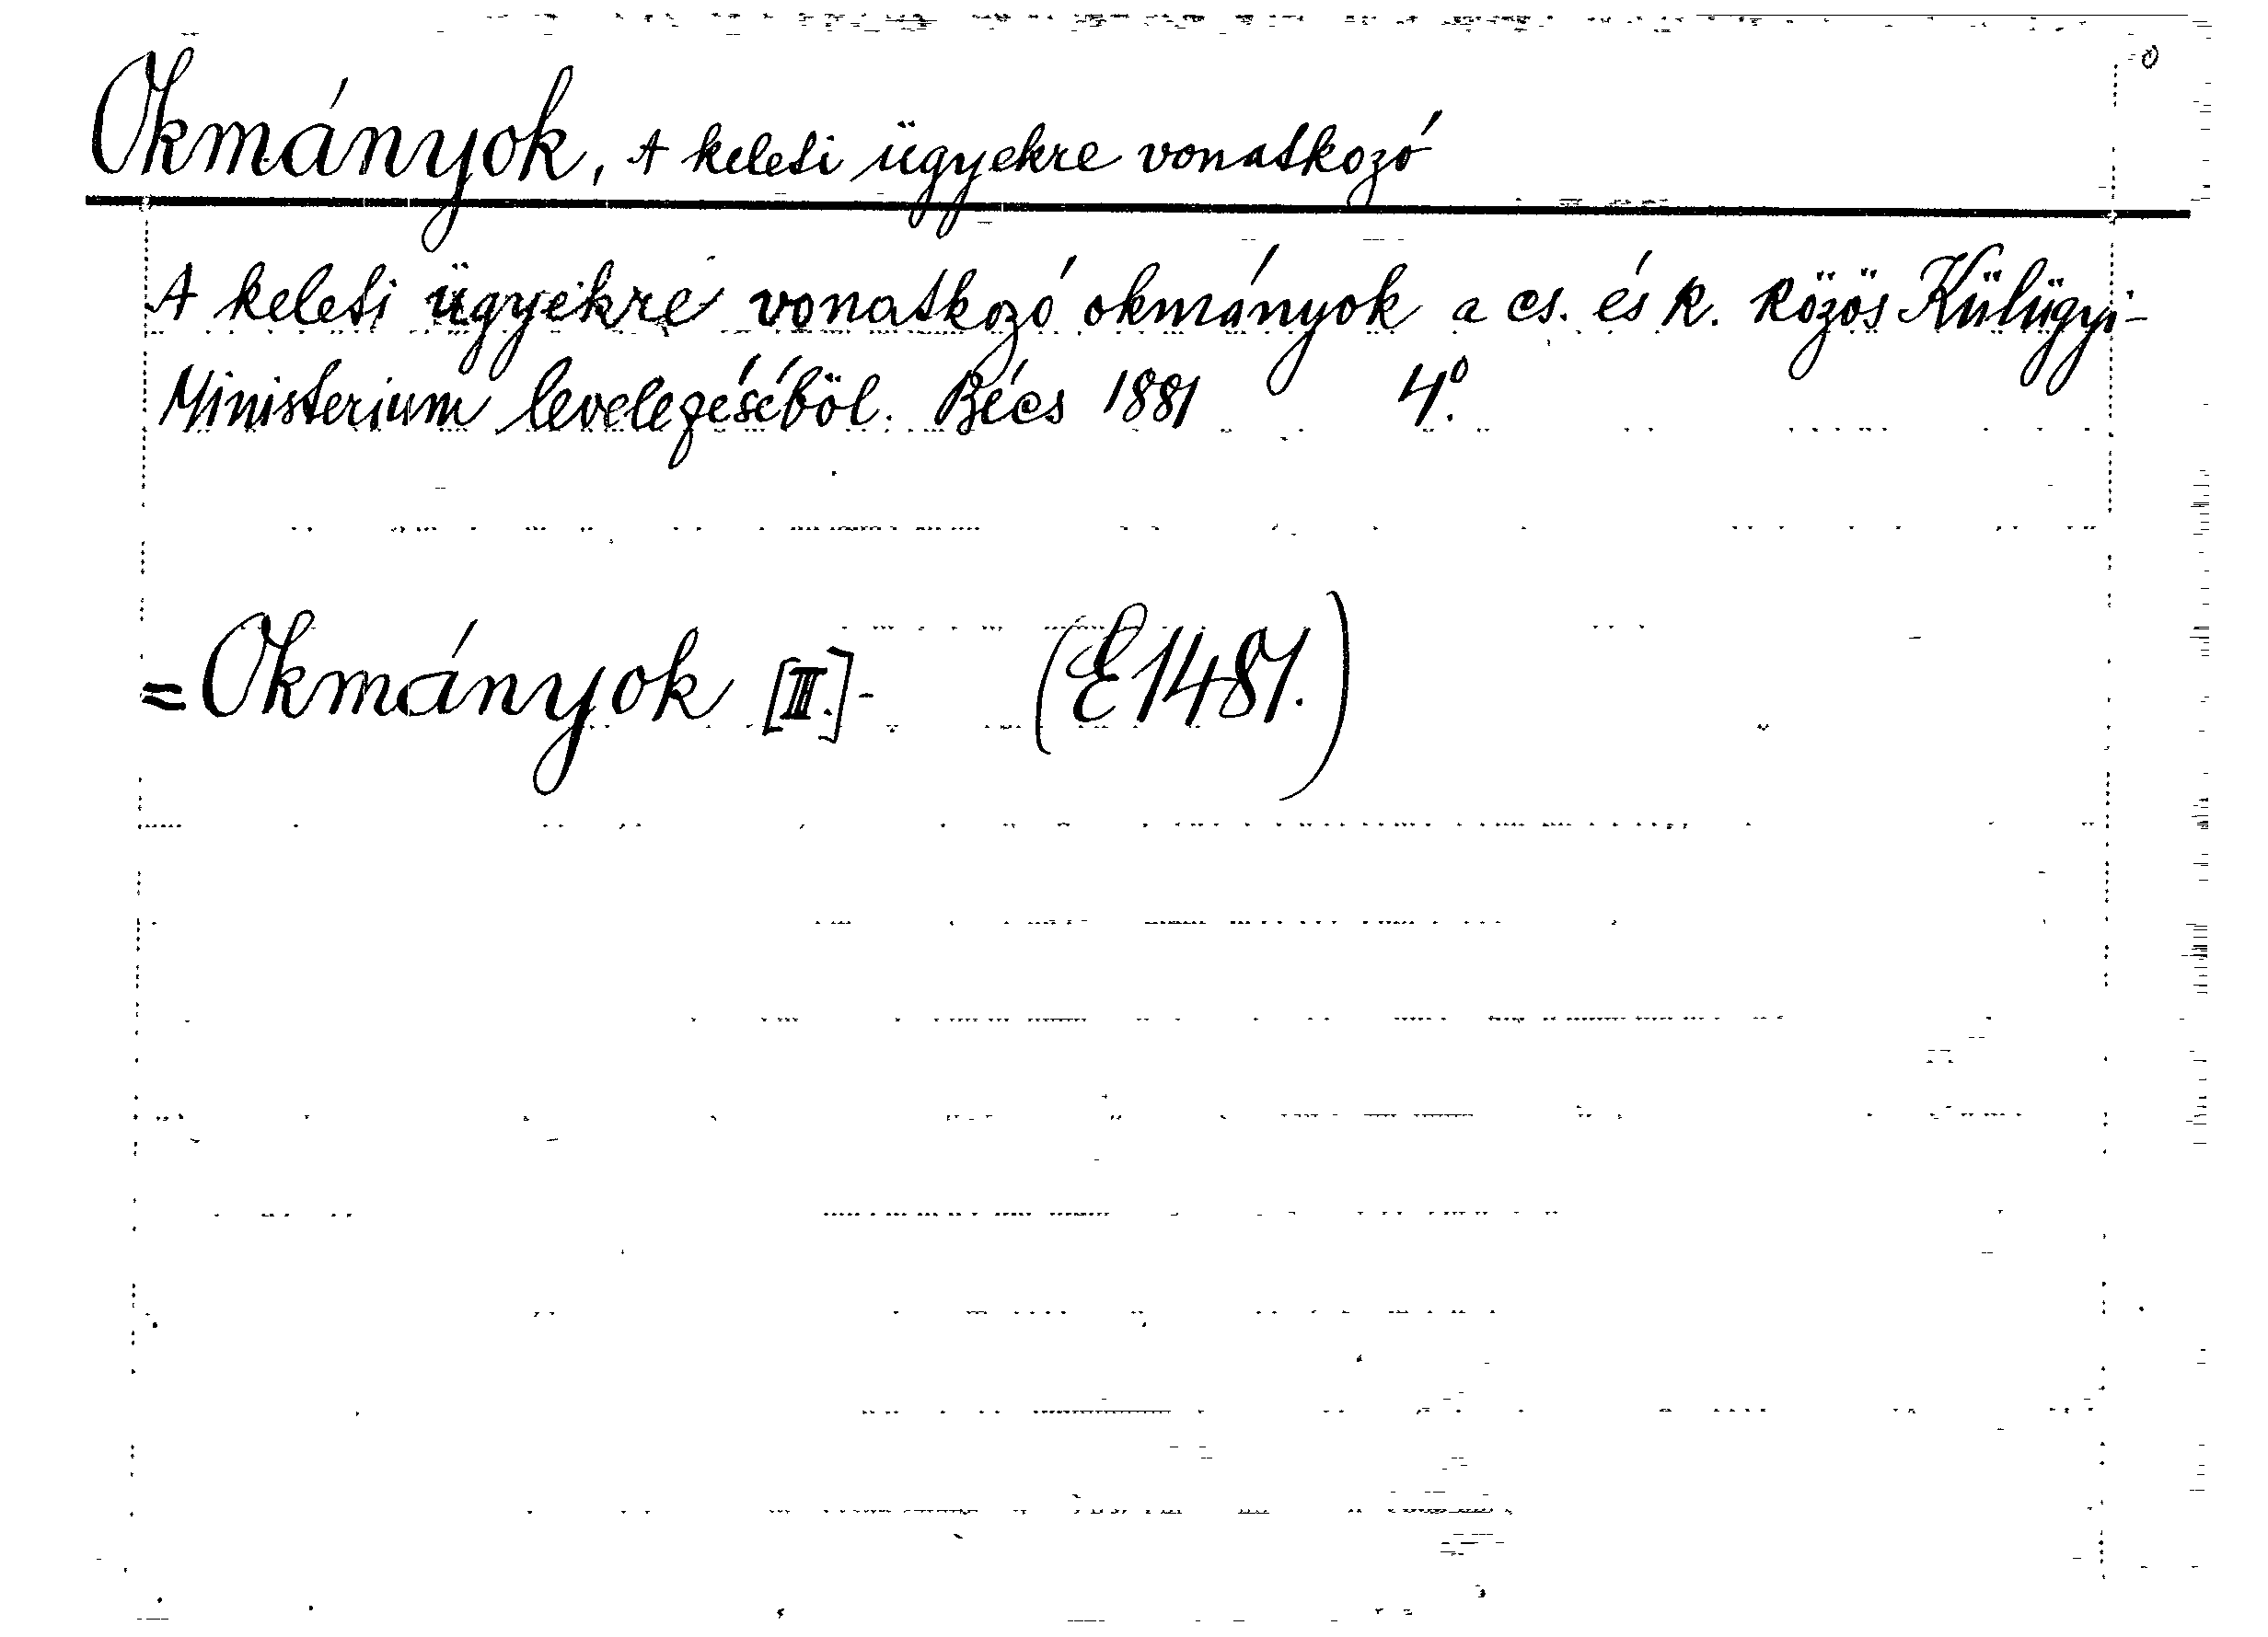 Okmányok, A keleti ügyekre vonatkozó
A keleti ügyekre vonatkozó okmányok a cs. és k. közös Külügyi-
Ministerium levelezéséböl. Bécs 1881 4º.
=Okmányok [III.]- (E1481.)